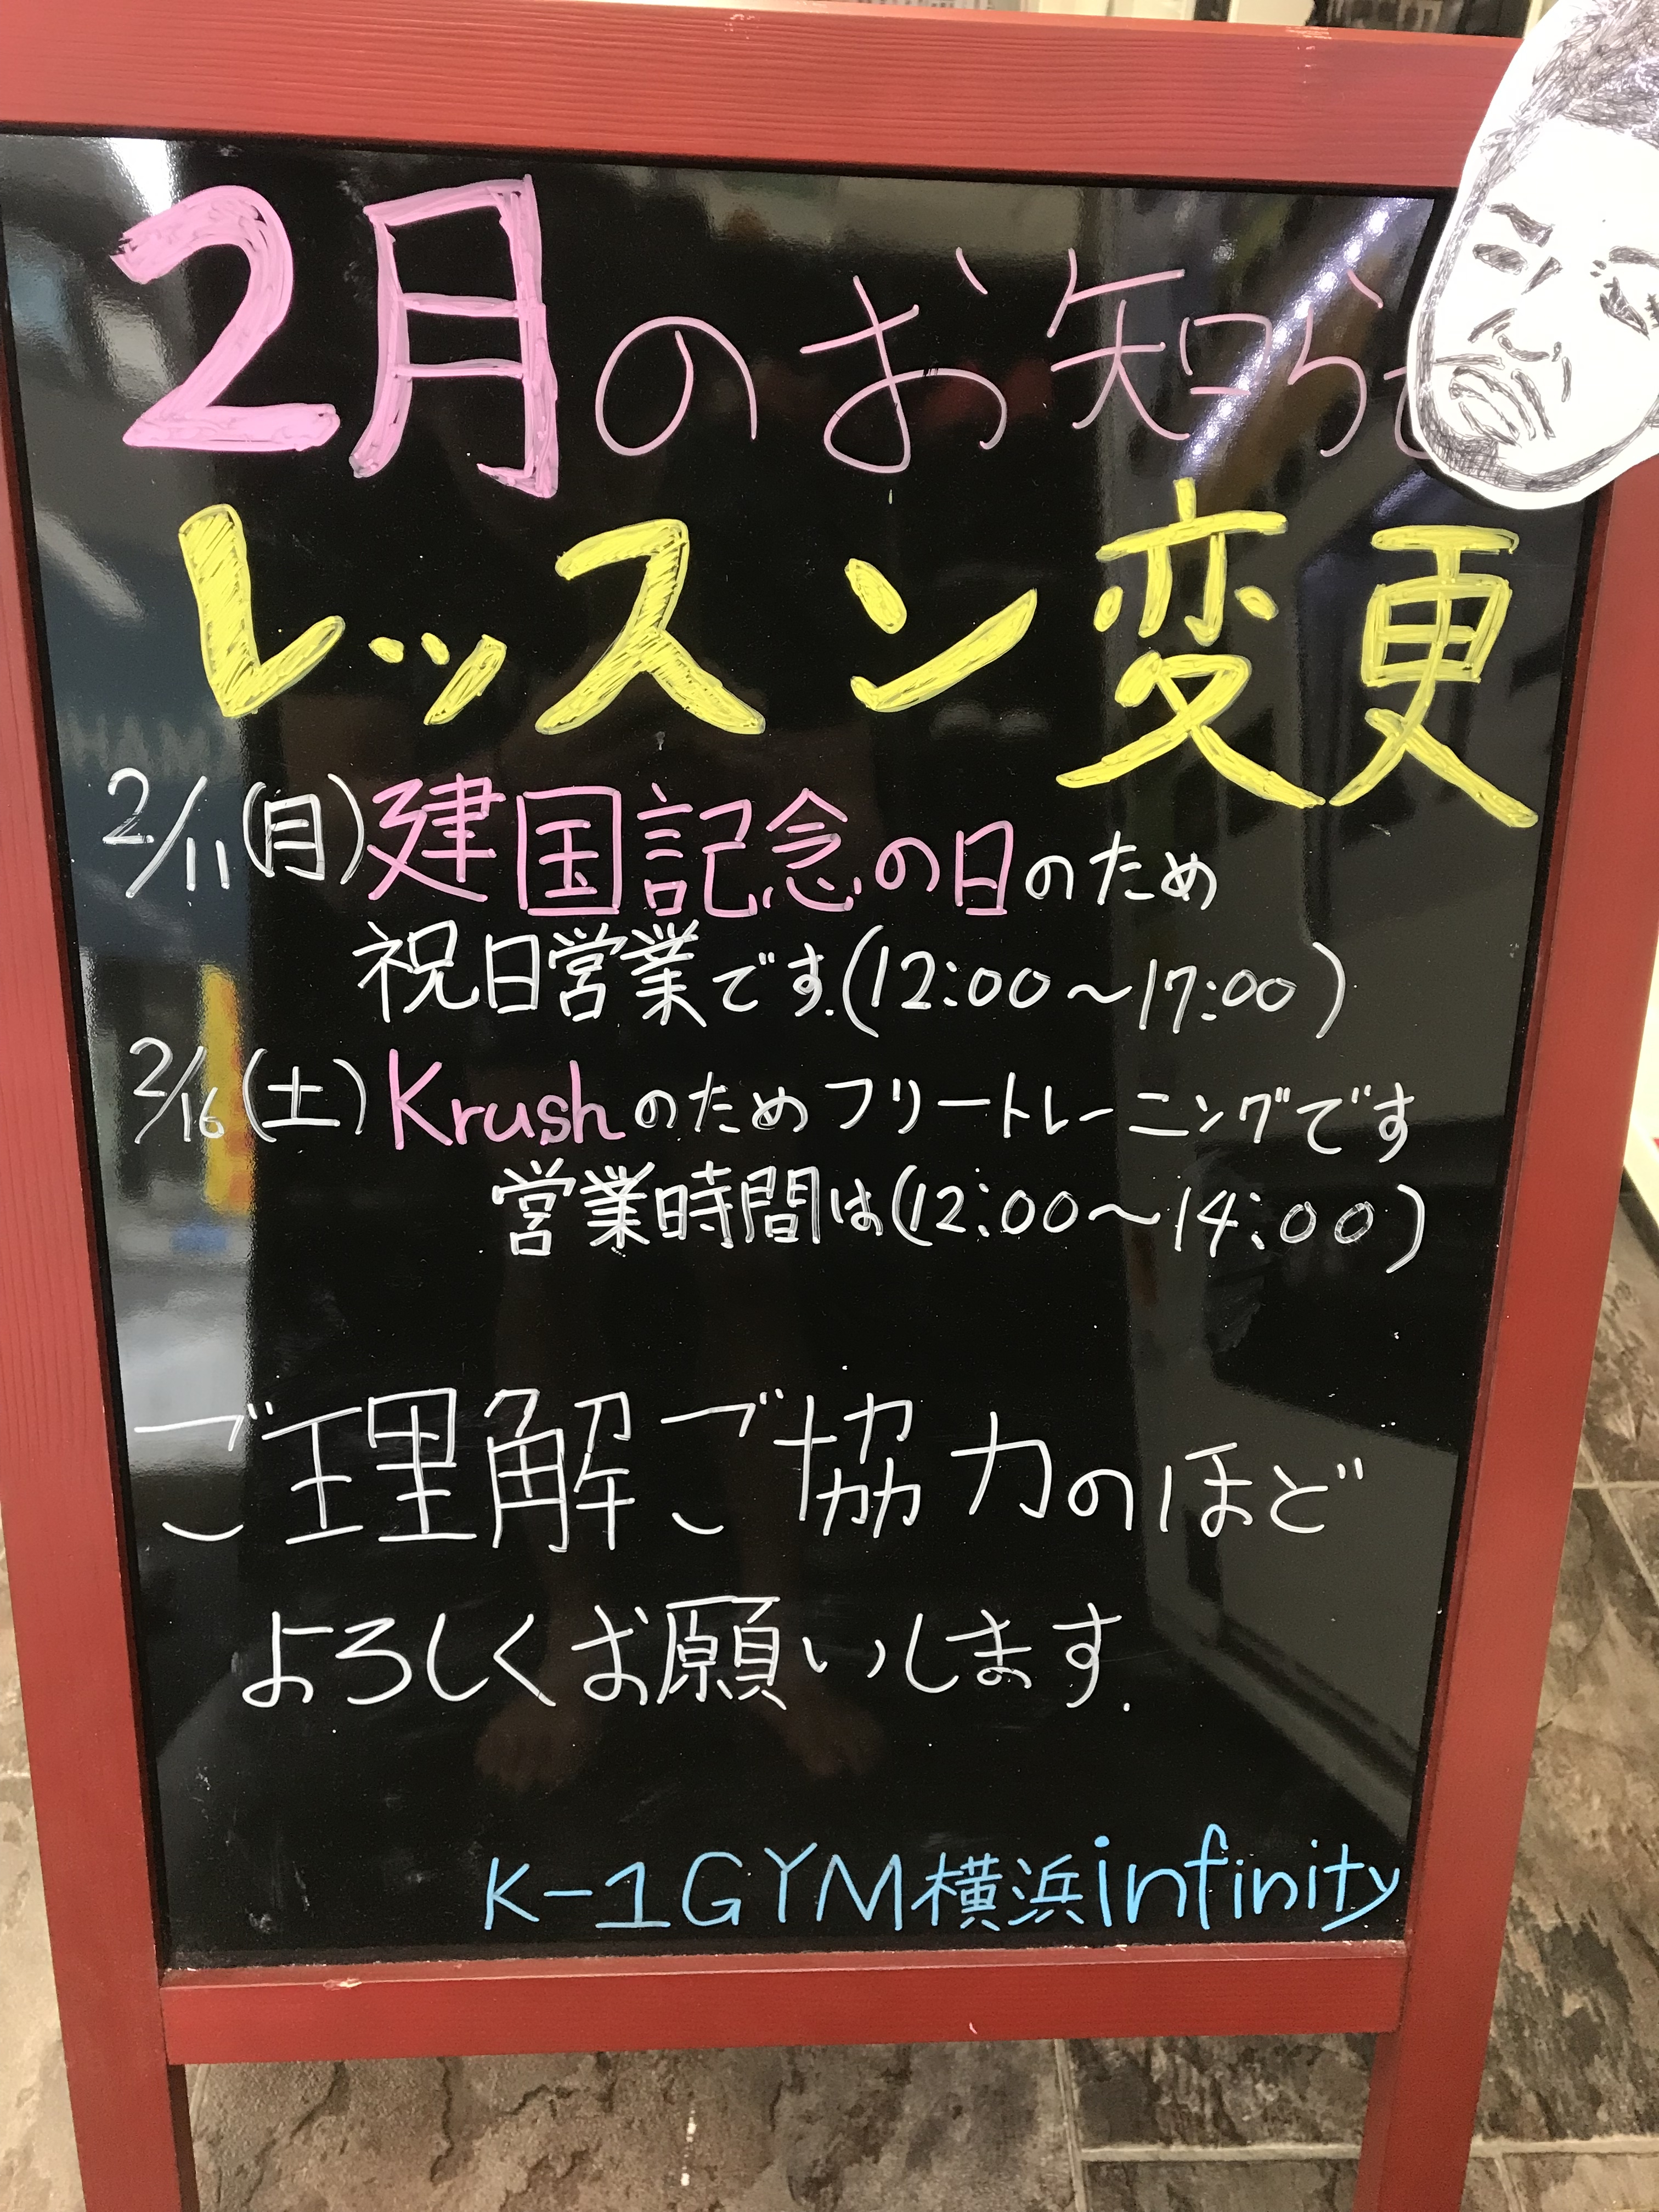 2月のお知らせ
レッスン変更
2/11(月)建国記念の日のため
祝日営業です.(12:00~17:00)
2/16(土)Krushのためフリートレーニングです
営業時間は(12:00~14:00)
ご理解ご協力のほど
よろしくお願いします.
K-1GYM横浜infinity